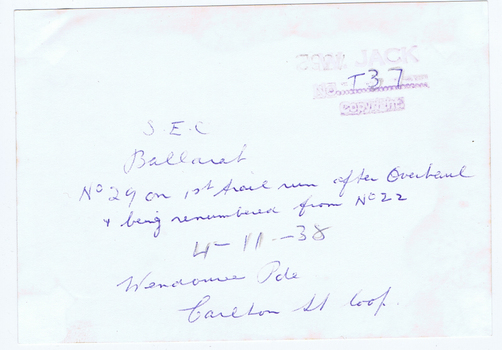 JACK
T37
COPYRIGHT
S.E.C
Ballarat
No 29 on 1st trail run after Overhaul
+ being renumbered from No 22
4-11-38
Wendouree Pde
Carlton St loop.